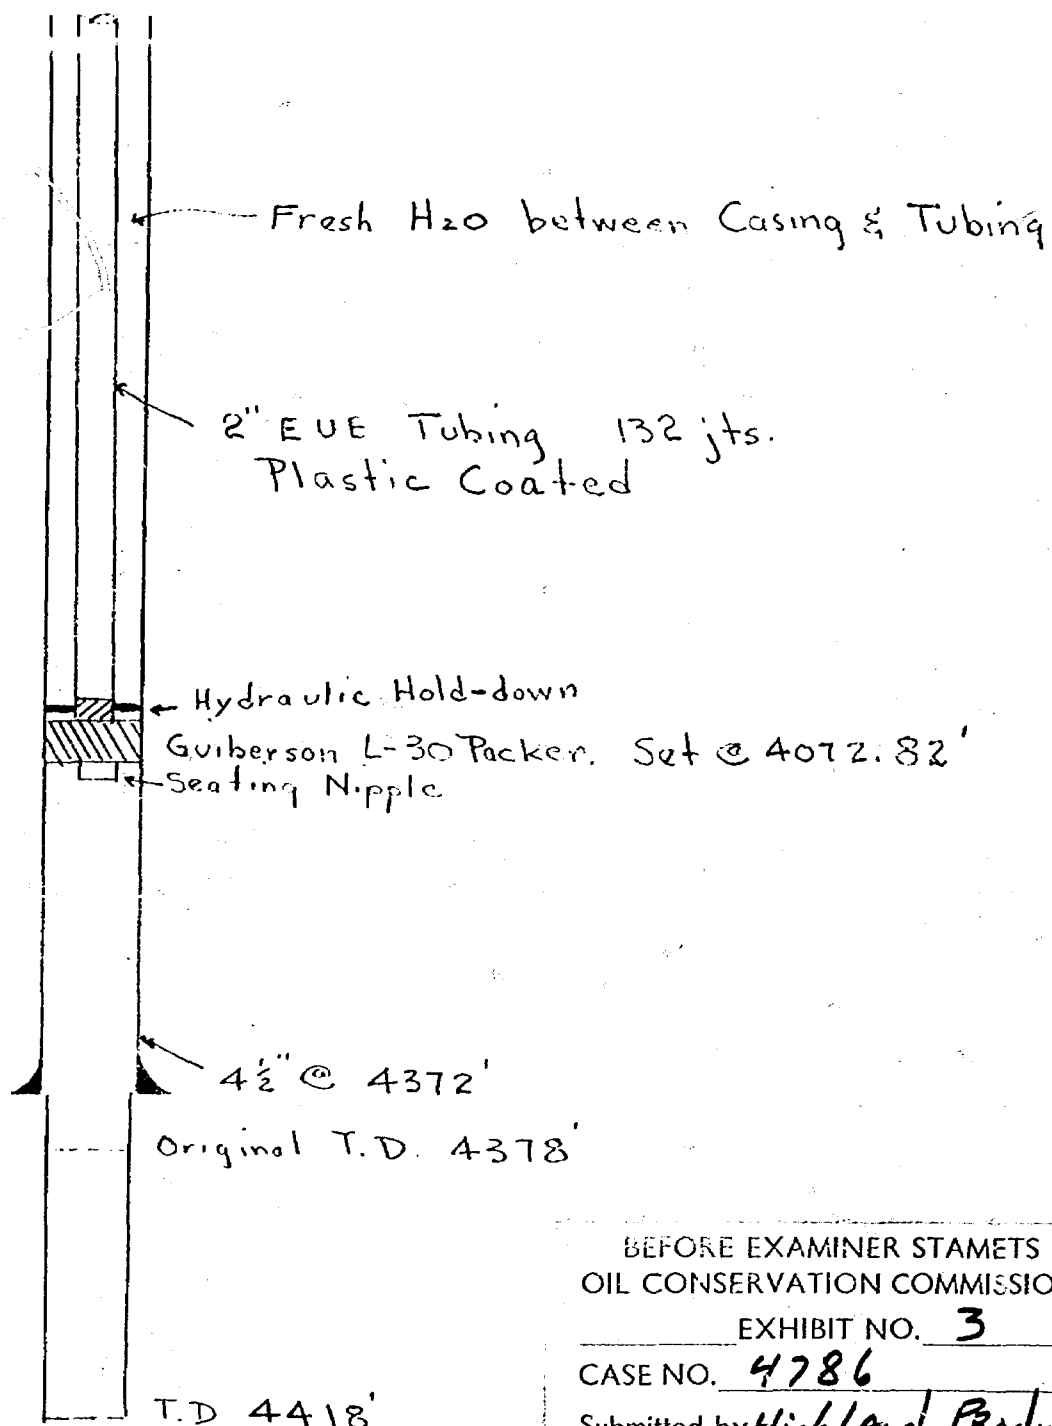 Fresh H2O between Casing & Tubing
2" EUE Tubing 132 jts.
Plastic Coated
Hydraulic Hold-down
Guiberson L-30 Packer. Set @ 4072.82'
Seating Nipple
4½" @ 4372'
Original T.D. 4378'
T.D 4418'
BEFORE EXAMINER STAMETS
OIL CONSERVATION COMMISSIO
EXHIBIT NO. 3
CASE NO. 4786
Submitted by Highland Prod